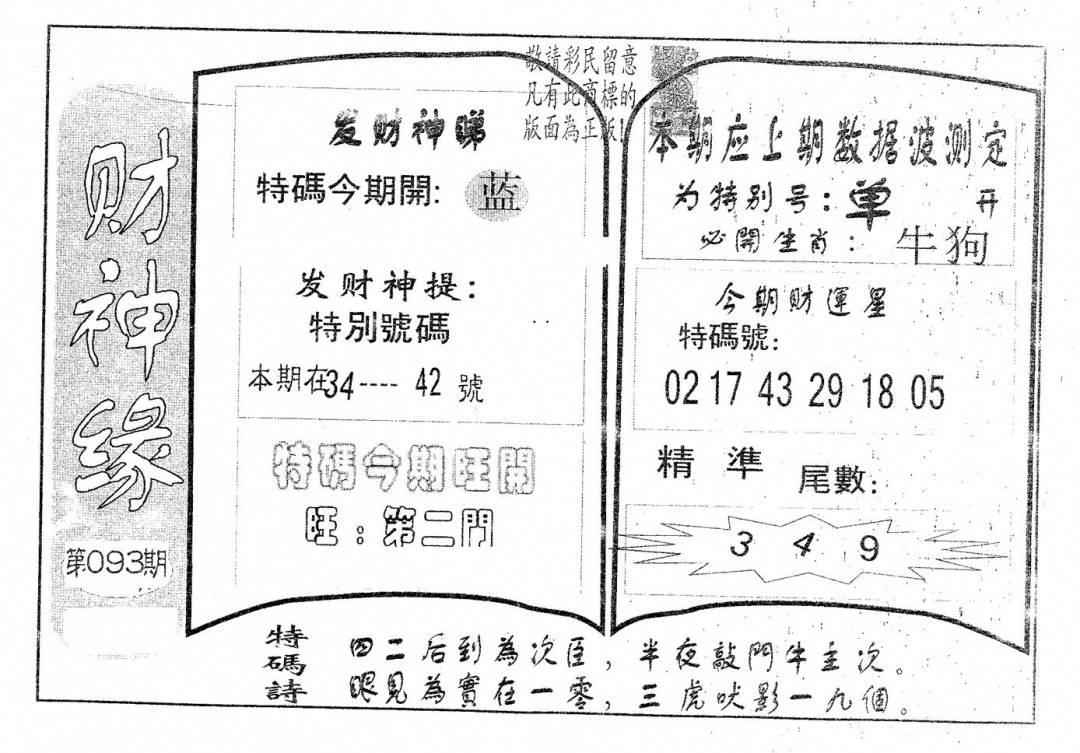 财神缘
第093期
敬請彩民留意
凡有此商標的
版面為正版!
发财神睇
特碼今期開: 蓝
发财神提:
特別號碼
本期在34---- 42 號
特碼今期旺開
旺:第二門
本期应上期数据波测定
为特别号:单 开
必開生肖: 牛狗
今期财運星
特碼號:
02 17 43 29 18 05
精 準 尾數:
3 4 9
特碼詩
四二后到為次臣,半夜敲門牛主次。
眼見為實在一零,三虎吠影一九個。